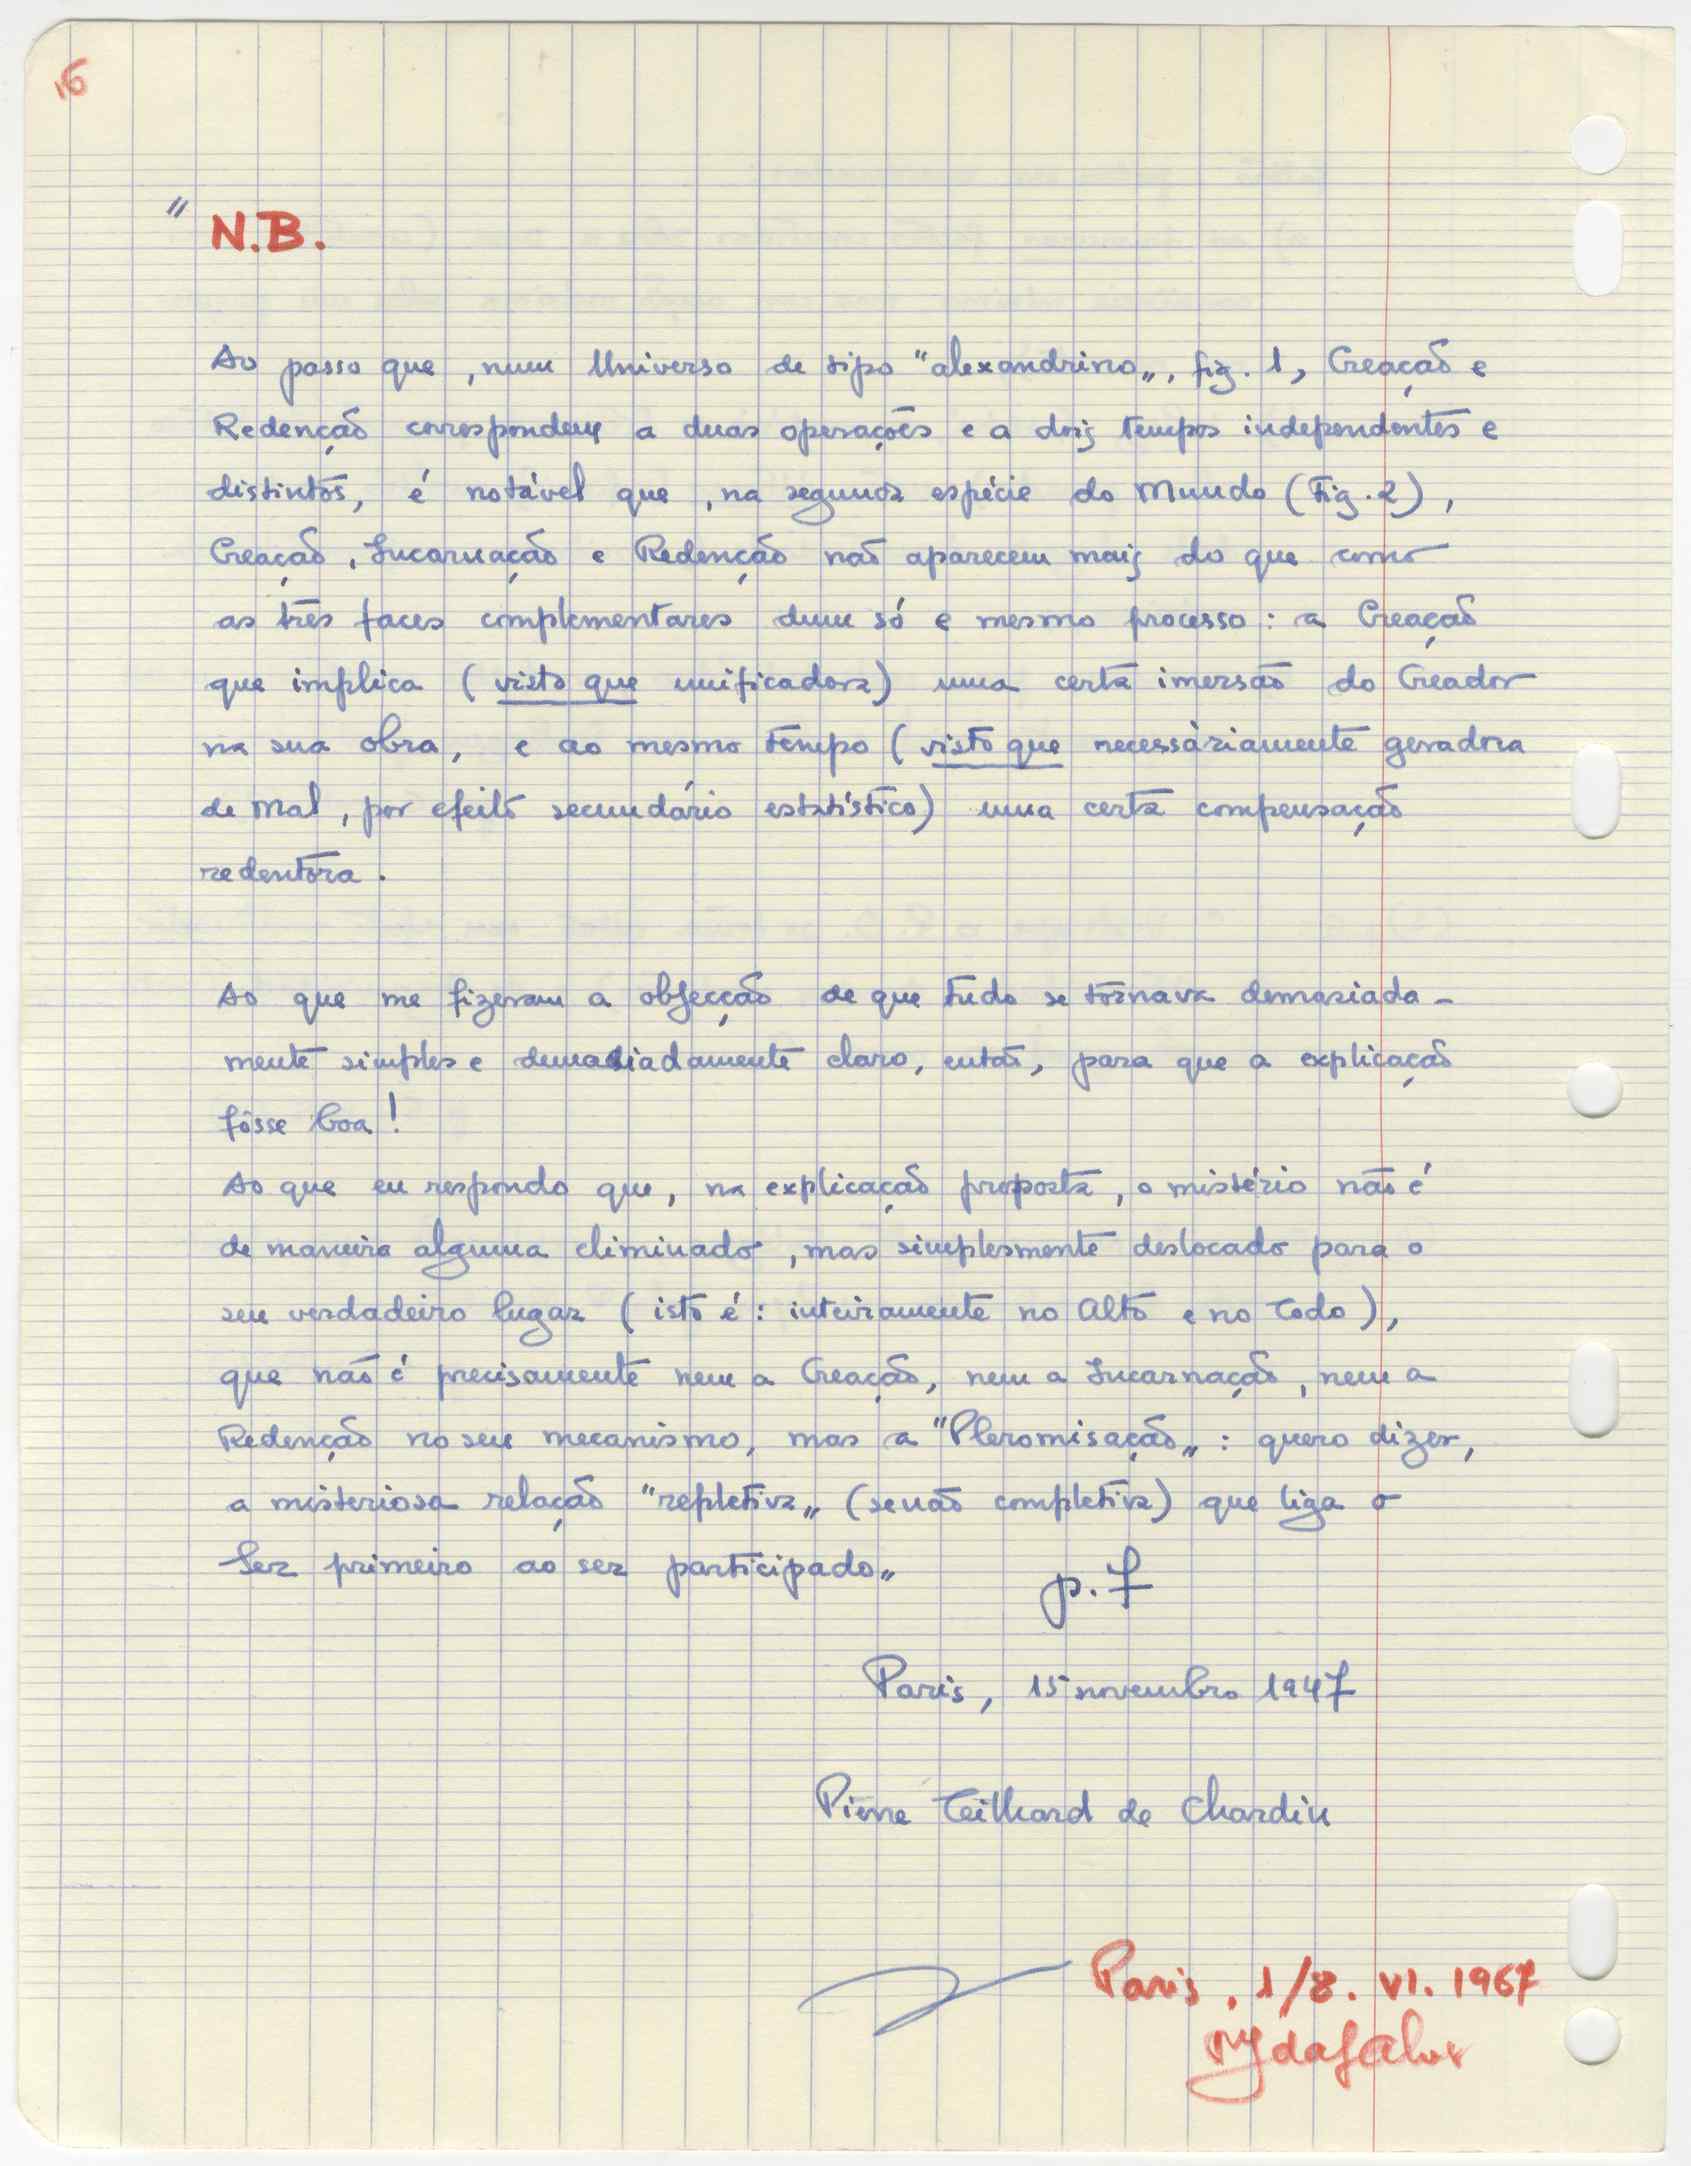 16
" N.B.
Ao passo que, num Universo de tipo "alexandrino„, fig. 1, Creação e
Redenção correspondem a duas operações e a dois tempos independentes e
distintos, é notável que, na segunda espécie do Mundo (Fig. 2),
Creação, Incarnação e Redenção não aparecem mais do que como
as três faces complementares dum só e mesmo processo: a Creação
que implica (visto que unificadora) uma certa imersão do Creador
na sua obra, e ao mesmo tempo (visto que necessàriamente geradora
de Mal, por efeito secundário estatístico) uma certa compensação
redentora.
Ao que me fizeram a objecção de que tudo se tornava demasiada-
mente simples e demasiadamente claro, então, para que a explicação
fôsse boa!
Ao que eu respondo que, na explicação proposta, o mistério não é
de maneira alguma eliminado, mas simplesmente deslocado para o
seu verdadeiro lugar (isto é: inteiramente no Alto e no Todo),
que não é precisamente nem a Creação, nem a Incarnação, nem a
Redenção no seu mecanismo, mas a "Pleromisação„: quero dizer,
a misteriosa relação "repletiva„ (senão completiva) que liga o
Ser primeiro ao ser participado„
p. 7
Paris, 15 novembro 1947
Pierre Teilhard de Chardin
Paris, 1/8. VI. 1967